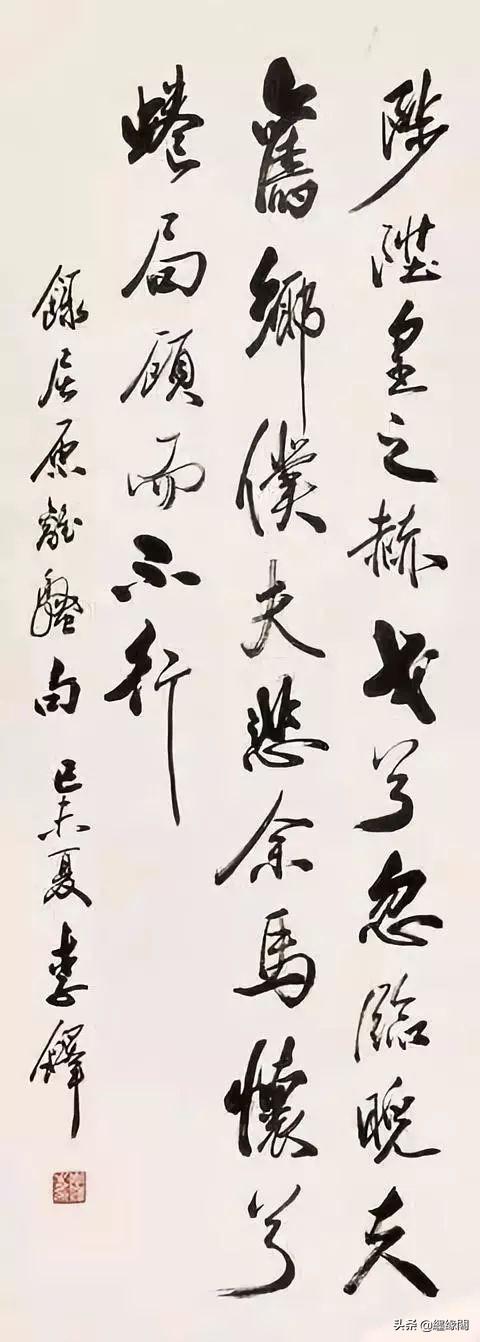 陟陞皇之赫戏兮忽臨睨夫
舊鄉僕夫悲余馬懷兮
蜷局顧而不行
錄屈原離騷句 己未夏 李鐸
头条